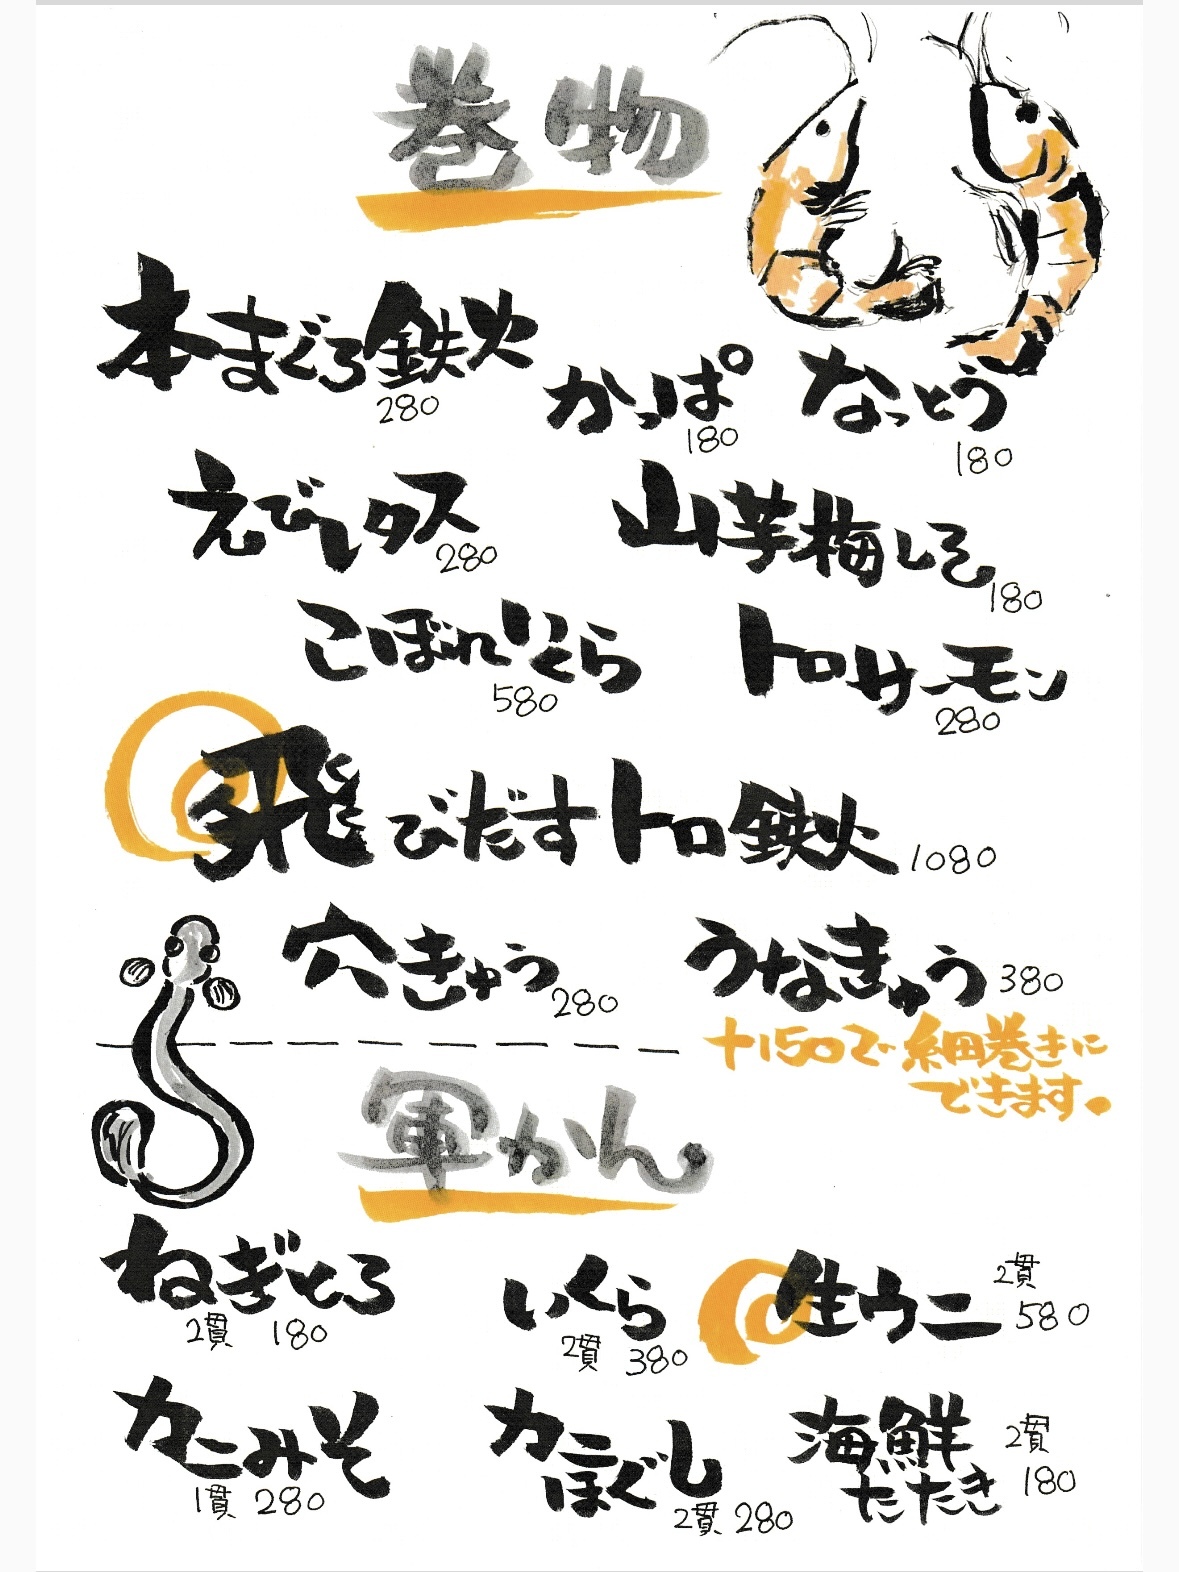 巻物
本まぐろ鉄火
280
かっぱ
180
なっとう
180
えびレタス
280
山芋梅しそ
180
こぼれいくら
580
トロサーモン
280
飛びだすトロ鉄火 1080
穴きゅう
280
うなきゅう 380
+150で細巻きに
できます。
軍かん
ねぎとろ
2貫 180
いくら
2貫 380
生ウニ
2貫
580
カニみそ
1貫 280
カニ
ほぐし
2貫 280
海鮮
たたき
2貫
180